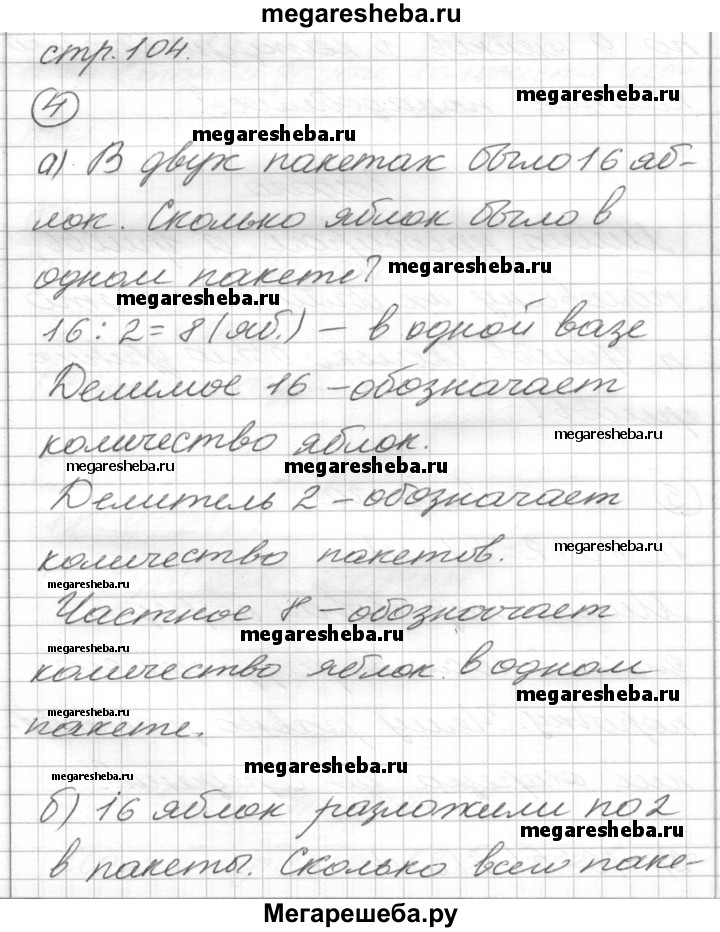 megaresheba.ru
стр. 104.
4
megaresheba.ru
megaresheba.ru
а) В двух пакетах было 16 яб-
лок. Сколько яблок было в
одном пакете?
megaresheba.ru
megaresheba.ru
16 : 2 = 8 (яб.) – в одной вазе
Делимое 16 – обозначает
количество яблок.
megaresheba.ru
megaresheba.ru
megaresheba.ru
Делитель 2 – обозначает
количество пакетов.
megaresheba.ru
megaresheba.ru
Частное 8 – обозначает
megaresheba.ru
megaresheba.ru
количество яблок в одном
megaresheba.ru
megaresheba.ru
пакете.
megaresheba.ru
megaresheba.ru
б) 16 яблок разложили по 2
megaresheba.ru
в пакеты. Сколько всего паке-
Мегарешеба.ру